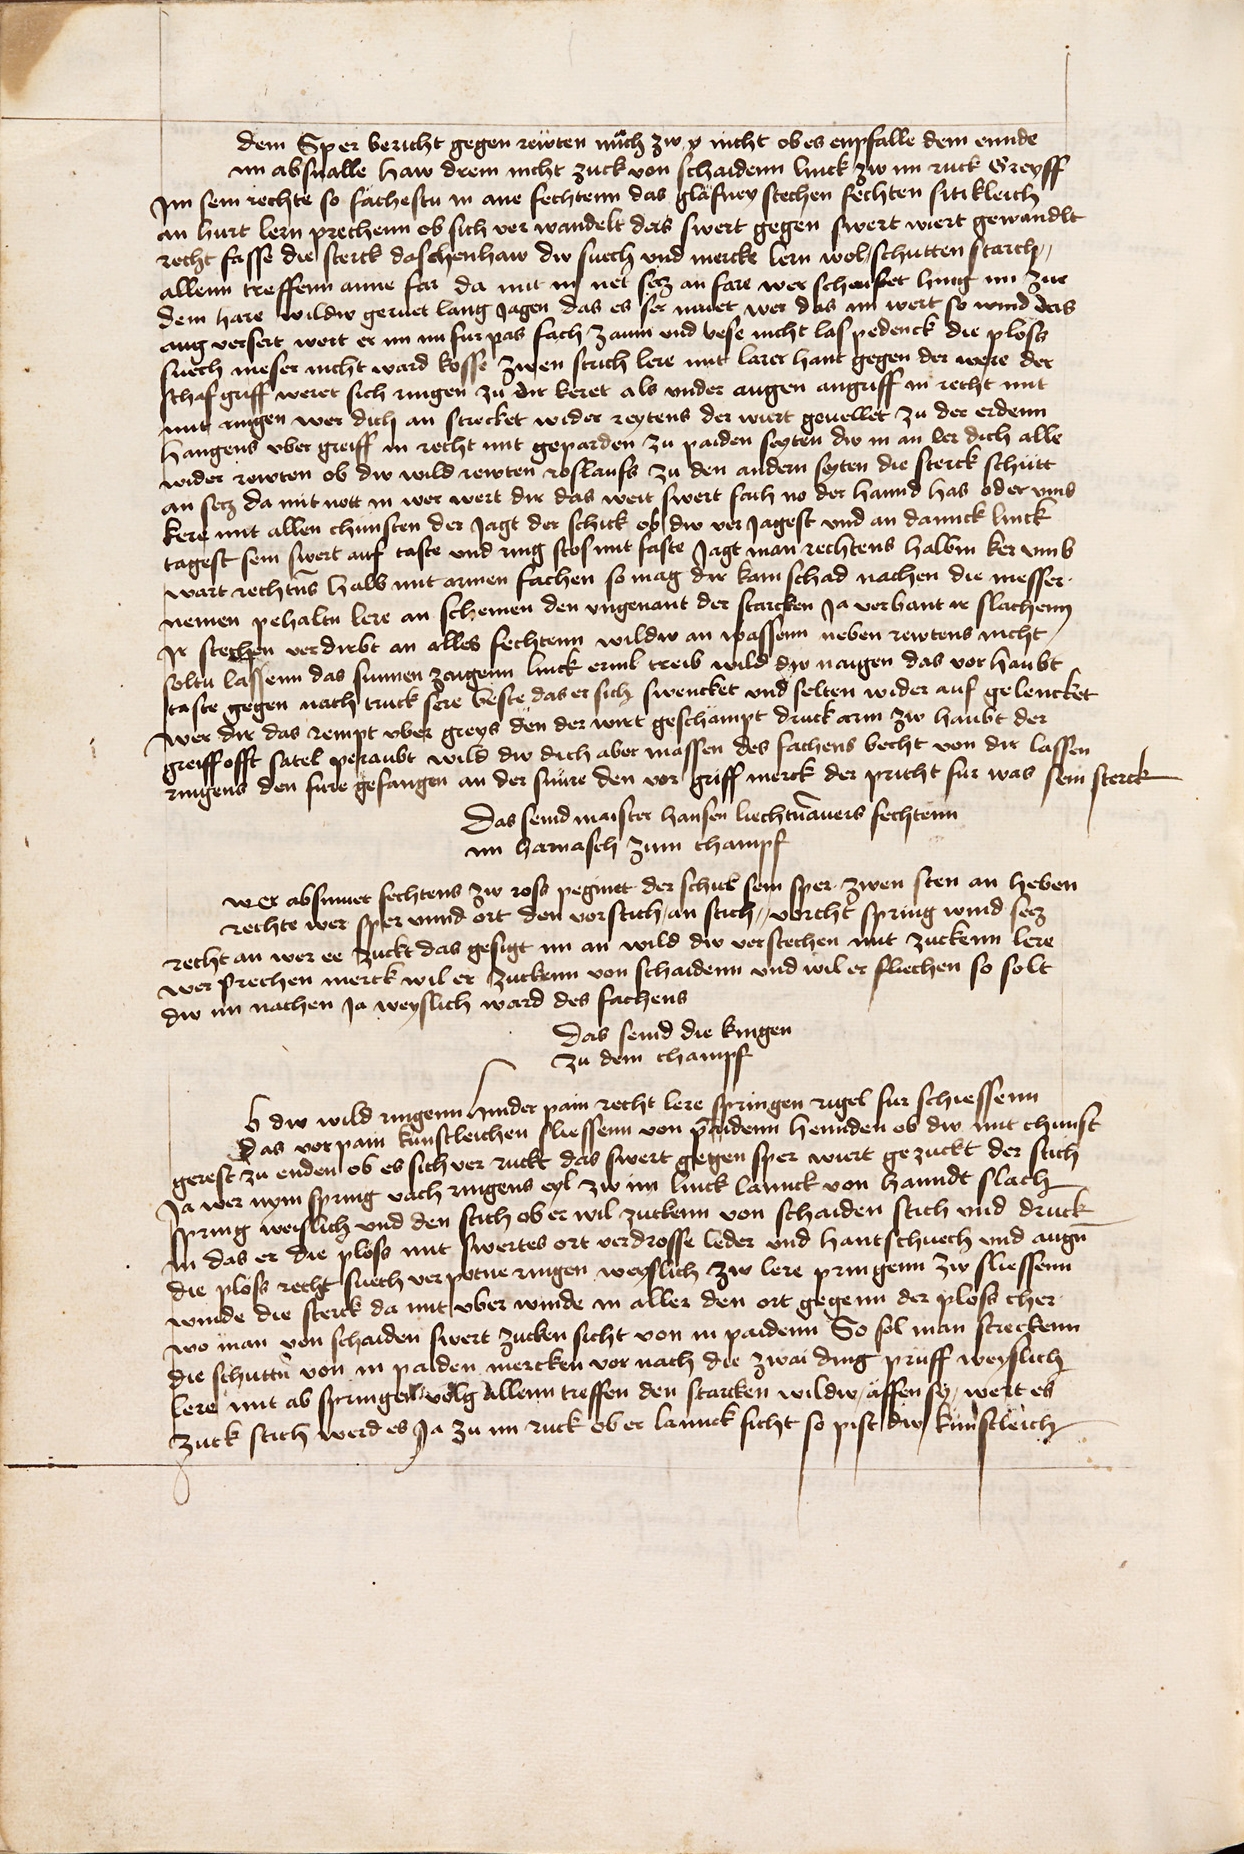 dem Sper bericht gegen rewten mich zw y nicht ob es enpfalle dem ennde
im absnalle haw drem nicht zuck von schaidenn linck zw im ruck Greyff
Im sem rechte so fachestu in ane fechtenn das glafney stechen fechten sitikleich
an hurt lern prechenn ob sich ver wandelt das swert gegen swert wiert gewandlt
recht fasse die sterck daschenhaw dw suech vnd mercke lern wol schutten starch
allenn treffenn anne far da mit in net secz an fare wer scheubet hing im zue
dem hare wildw geruet lang Jagen das es ser muet wer das im wert so wind das
aug versert wert er im im fur pas fach zaum vnd vese nicht las pedenck die ploss
suech meser nicht ward kosse zwen strich lere mit larer hant gegen der were der
schaf griff weret sich ringen zu dir keret als vnder augen angriff in recht mit
mit ringen wer dich an strecket wider reytens der wiert geuellet zu der erdenn
hangens vber greiff in recht mit geparden zu paiden seyten dw in an ler dich alle
wider rewten ob dw wild rewten roslaufs zu den andern seyten die sterck schutt
an secz da mit nott in wer wert dir das weit swert fach no der hannd has oder vmb
kere mit allen chunsten der Jagt der schick ob dw ver Jagest vnd an danck linck
tagest sem swert auf taste vnd ring stos mit faste Jagt man rechtens halbm ker vmb
wart rechtns halb mit armen fachen so mag dir kain schad nachen die messer
nemen pehaltn lere an schemen den vngenant der starcken Ja verbant ir slachenn
Ir stechen verdirbt an alles fechtenn wildw an wassenn neben rewtens nicht
soltu lassenn das sunnen zaigenn linck erml treib wild dw naigen das vor haubt
taste gegen nach truck sere veste das er sich swencket vnd selten wider auf gelencket
wer dir das rempt vber greys den der wirt geschampt druck arm zw haubt der
greiff offt satel peraubt wild dw dich aber massen des fachens becht von dir lassen
ringens den fure gefangen an der snure den vor griff merck der pricht fur was sem sterck
Das seind maister hansen liechtnauers fechtenn
im harnasch zum champf
wer absinnet fechtens zw ross peginnt der schul sein sper zwen sten an heben
rechte wer sper vnnd ort den vorstich an stich vorcht spring wind secz
recht an wer ee zuckt das gesigt im an wild dw verstechen mit zuckenn lere
wer prechen merck wil er zuckenn von schaidenn vnd wil er fliechen so solt
dw im nachen Ja weyslich ward des fachens
Das seind die Ringen
zu dem champf
b dw wild ringenn hinder pain recht lere springen rigel fur schiessenn
Das vor pain kunstleichen sliessenn von paidenn hennden ob dw mit chunst
gerest zu enden ob es sich ver ruckt das swert gegen sper wiert gezuckt der stich
Ja wer nym spring vach ringens eyl zw im linck lannck von hanndt slach
spring weislich vnd den stich ob er wil zuckenn von schaiden stich vnd druck
in das er die ploss mit swertes ort verdrosse leder vnd hantschuech vnd augn
die ploss recht suech verpotne ringen weyslich zw lere pringenn zw sliessenn
winde die sterck da mit vber winde in aller den ort gegenn der ploss cher
wo man von schaiden swert zucken sicht von in paidenn So sol man streckenn
die schuttn von in paiden mercken vor nach die zwai ding pruff weyslich
lere mit ab springen volg Allenn treffen den starcken wildw affen sy wert es
zuck stich werd es Ja zu im ruck ob er lannck sicht so pist dw kunstleich